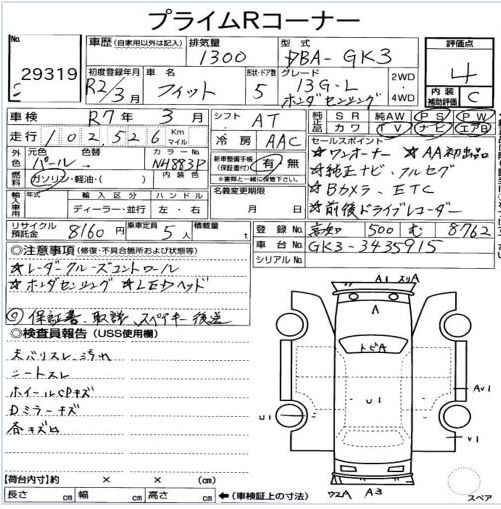 プライムRコーナー
No. 29319
車歴 (自家用以外は記入)
排気量 1300
型式 DBA-GK3
評価点 4
内装補助評価 C
初度登録年月 R2/3月
車名 フィット
形状・ドア数 5
グレード 13G・L ホンダセンシング
2WD・4WD
車検 R7年3月
シフト AT
走行 102526 Km マイル
冷房 AAC
純正 SR 純AW PS PW
社外 カワ TV ナビ エアB
セールスポイント
★ワンオーナー ★AA初出品
★純正ナビ、フルセグ
★Bカメラ、ETC
★前後ドライブレコーダー
外色 元色 パール 色替
カラーNo. NH883P
燃料 ガソリン・軽油・( )
内装色
新車整備手帳(保証書付) 有・無
※書類と一緒に送付
名義変更期限 月 日
輸入車 年式 輸入区分 ハンドル
年 ディーラー・並行 左・右
リサイクル預託金 8160円
乗車定員 5人
積載量 t
登録No. 高知 500 む 8762
車台No. GK3-3435915
シリアルNo.
◎注意事項 (修復・不具合箇所および状態等)
★レーダークルーズコントロール
★ホンダセンシング ★LEDヘッド
◎保証書、取説、スペアキー後送
◎検査員報告 (USS使用欄)
天バリスレ、汚れ
シートスレ
ホイールCPキズ
Dミラーキズ
各キズ凹
A1 スリA
A
トビA
U1
U1
Av1
v1
ワ2A A3
スペア
【荷台内寸】約 × ×
長さ cm 幅 cm 高さ cm ←(車検証上の寸法)